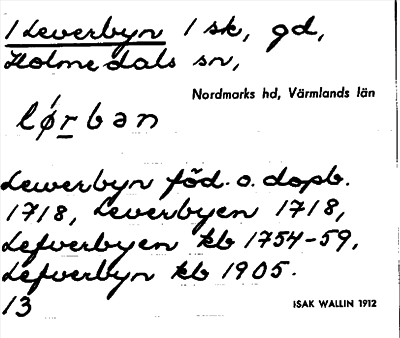 1 Leverbyn 1 sk, gd,
Holmedals sn,
Nordmarks hd, Värmlands län
lǿrban
Lewerbyn föd. o. dopb.
1718, Leverbyen 1718,
Lefverbyen kb 1754-59,
Lefverbyn kb 1905.
13
ISAK WALLIN 1912